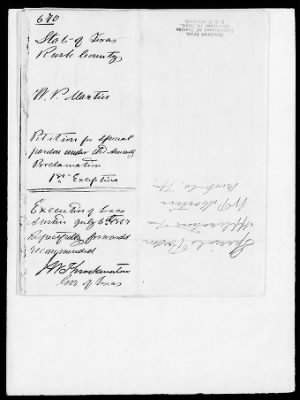 680
State of Texas
Rusk County
W. P. Martin
Petition for special
pardon under the Amnesty
Proclamation
1st Exception
Executive of Texas
Austin July 6th 1867
Respectfully forwarded
recommended
J W Throckmorton
Gov of Texas
Special Pardon
Application
W P Martin